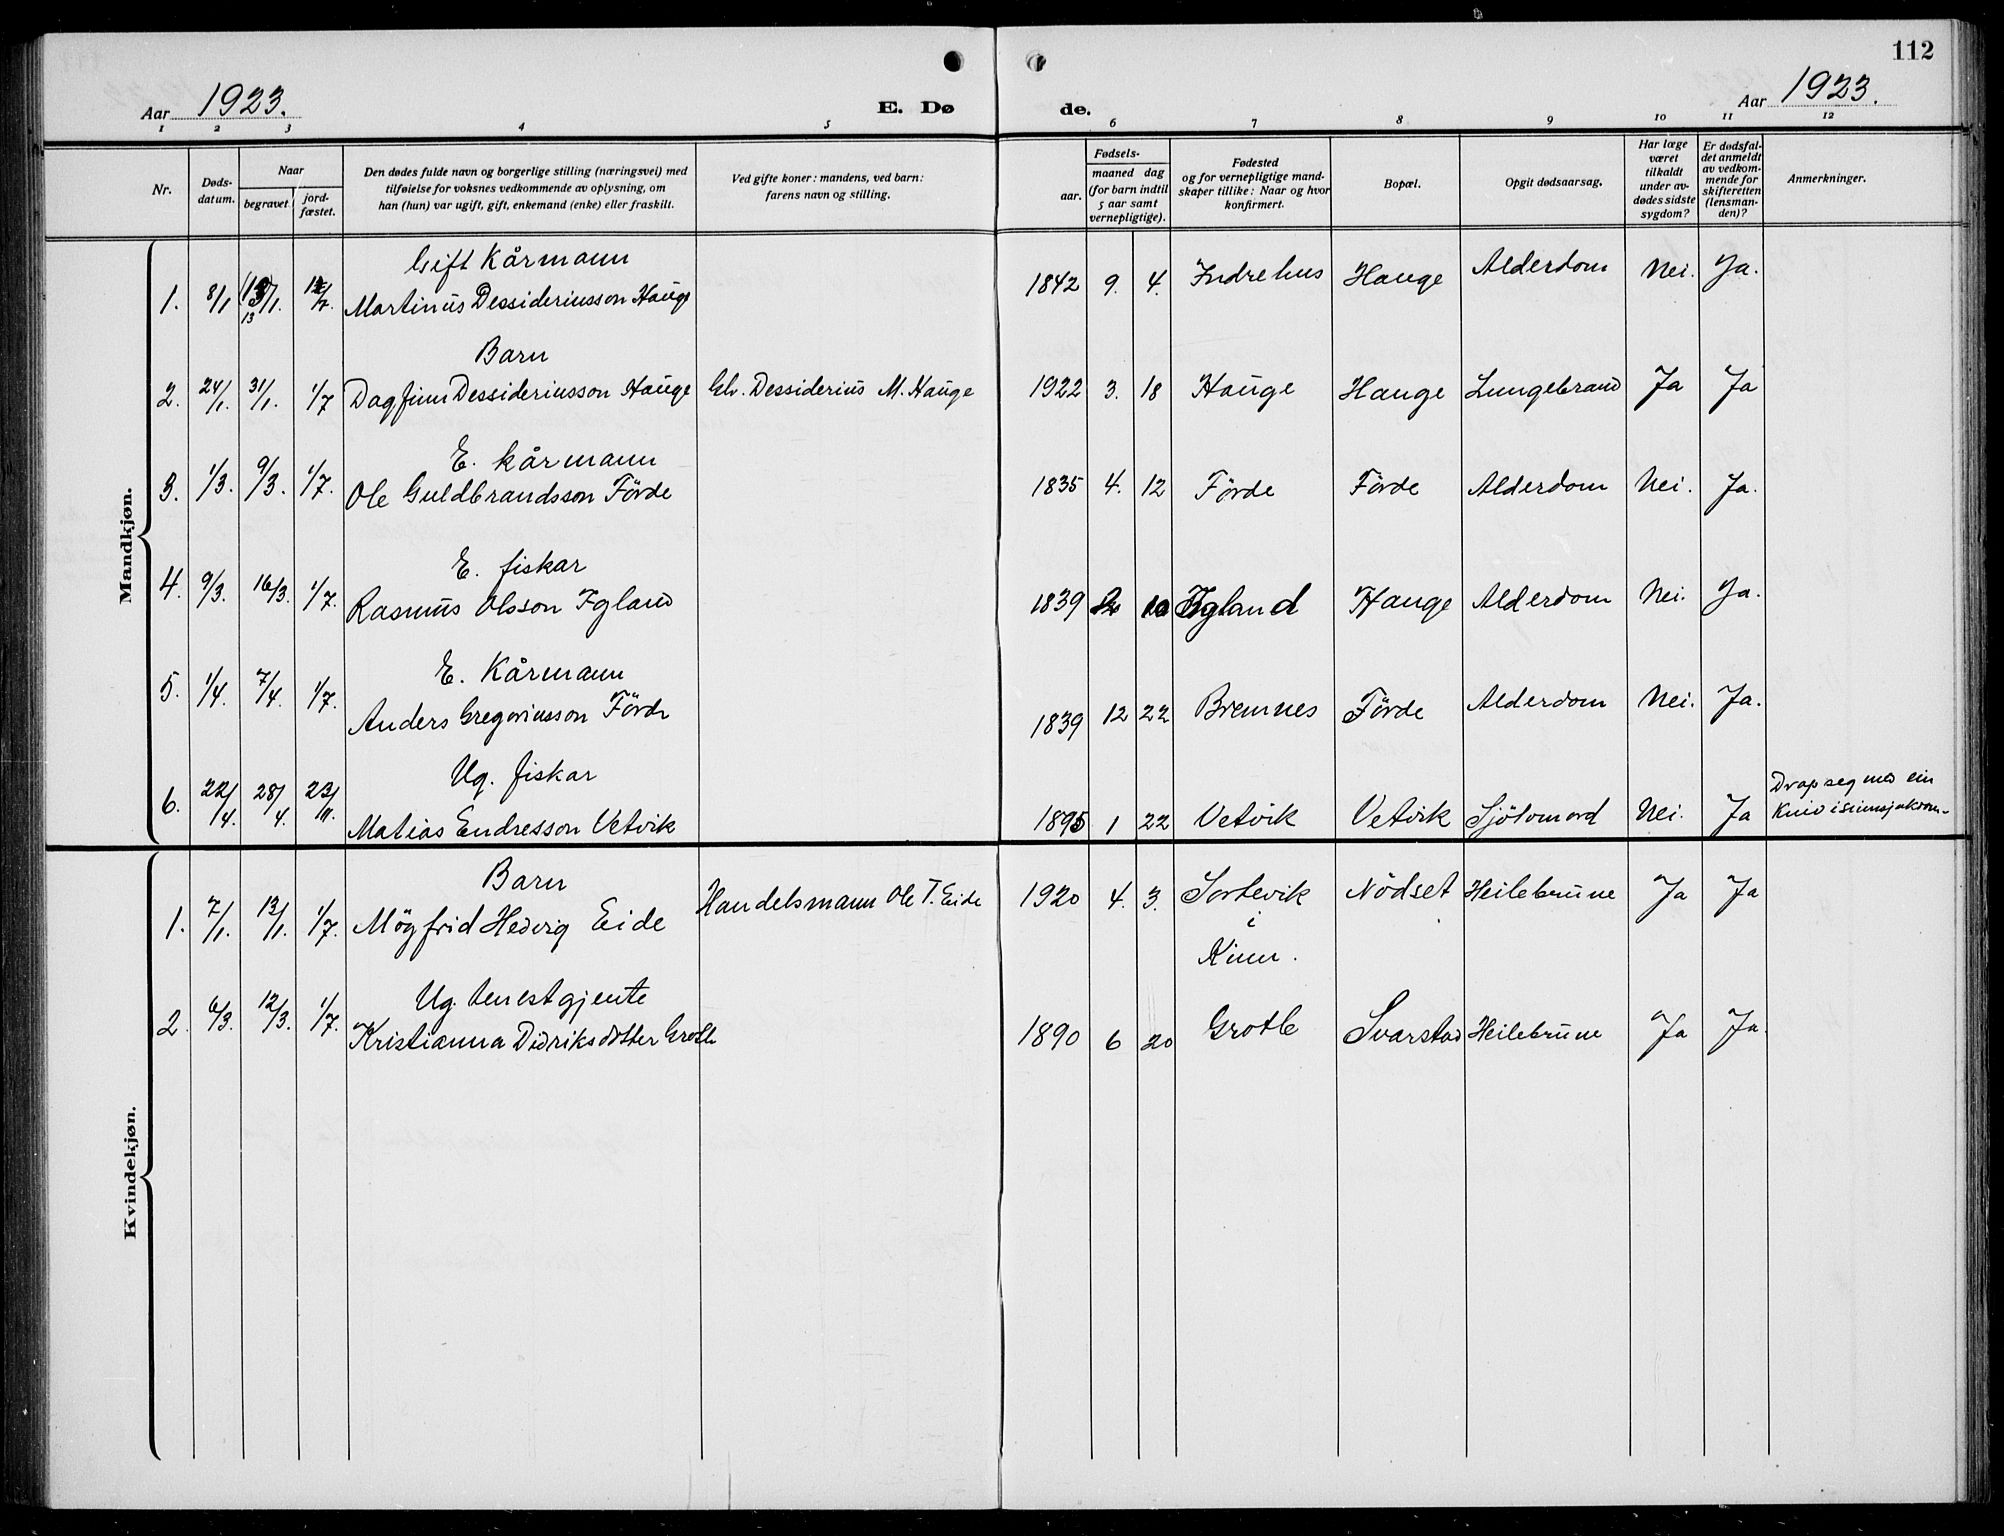 112
Aar 1923.
E. Dø
de.
Aar 1923.
1 2 3 4 5 6 7 8 9 10 11 12
Nr.
Døds-
datum.
Naar
begravet.
jord-
fæstet.
Den dødes fulde navn og borgerlige stilling (næringsvei) med
tilføielse for voksnes vedkommende av oplysning, om
han (hun) var ugift, gift, enkemand (enke) eller fraskilt.
Ved gifte koner: mandens, ved barn:
farens navn og stilling.
Fødsels-
aar.
maaned dag
(for barn indtil
5 aar samt
vernepligtige).
Fødested
og for vernepligtige mand-
skaper tillike: Naar og hvor
konfirmert.
Bopæl.
Opgit dødsaarsag.
Har læge
været
tilkaldt
under av-
dødes sidste
sygdom?
Er dødsfal-
det anmeldt
av vedkom-
mende for
skifteretten
(lensman-
den)?
Anmerkninger.
Mandkjøn.
Gift Kårmann
1. 8/1 13/1. Martinus Dessideriusson Hauge 1842 9. 4. Indrehus Hauge Alderdom Nei. Ja.
13
Barn
2. 24/1. 31/1. 1/7 Dagfinn Dessideriusson Hauge Gb. Dessiderius M. Hauge 1922 3. 18 Hauge Hauge Lungebrand Ja Ja
E. kårmann
3. 1/3. 9/3. 1/7. Ole Guldbrandsson Förde 1835 4. 12 Förde Förde Alderdom Nei. Ja.
E. fiskar
4. 9/3. 16/3. 1/7. Rasmus Olsson Igland 1839 2 10 Igland Hauge Alderdom Nei. Ja.
E. Kårmann
5. 1/4. 7/4. 1/7. Anders Gregoriusson Förde 1839 12 22 Bremnes Förde Alderdom Nei. Ja.
Ug. fiskar
6. 22/4. 28/4. 23/11. Matias Endresson Vetvik 1895 1 22 Vetvik Vetvik Sjölvmord Nei. Ja
Drap seg med ein
Kniv i
Kvindekjøn.
Barn
1. 7/1. 13/1. 1/7. Mögfrid Hedvig Eide Handelsmann Ole T. Eide 1920 4. 3. Sortevik Nödset Heilebrune Ja Ja
i
Kinn.
Ug. tenestgjente
2. 6/3. 12/3. 1/7. Kristianna Didriksdotter Grotle 1890 6 20 Grotle Svarstad Heilebrune Ja Ja.